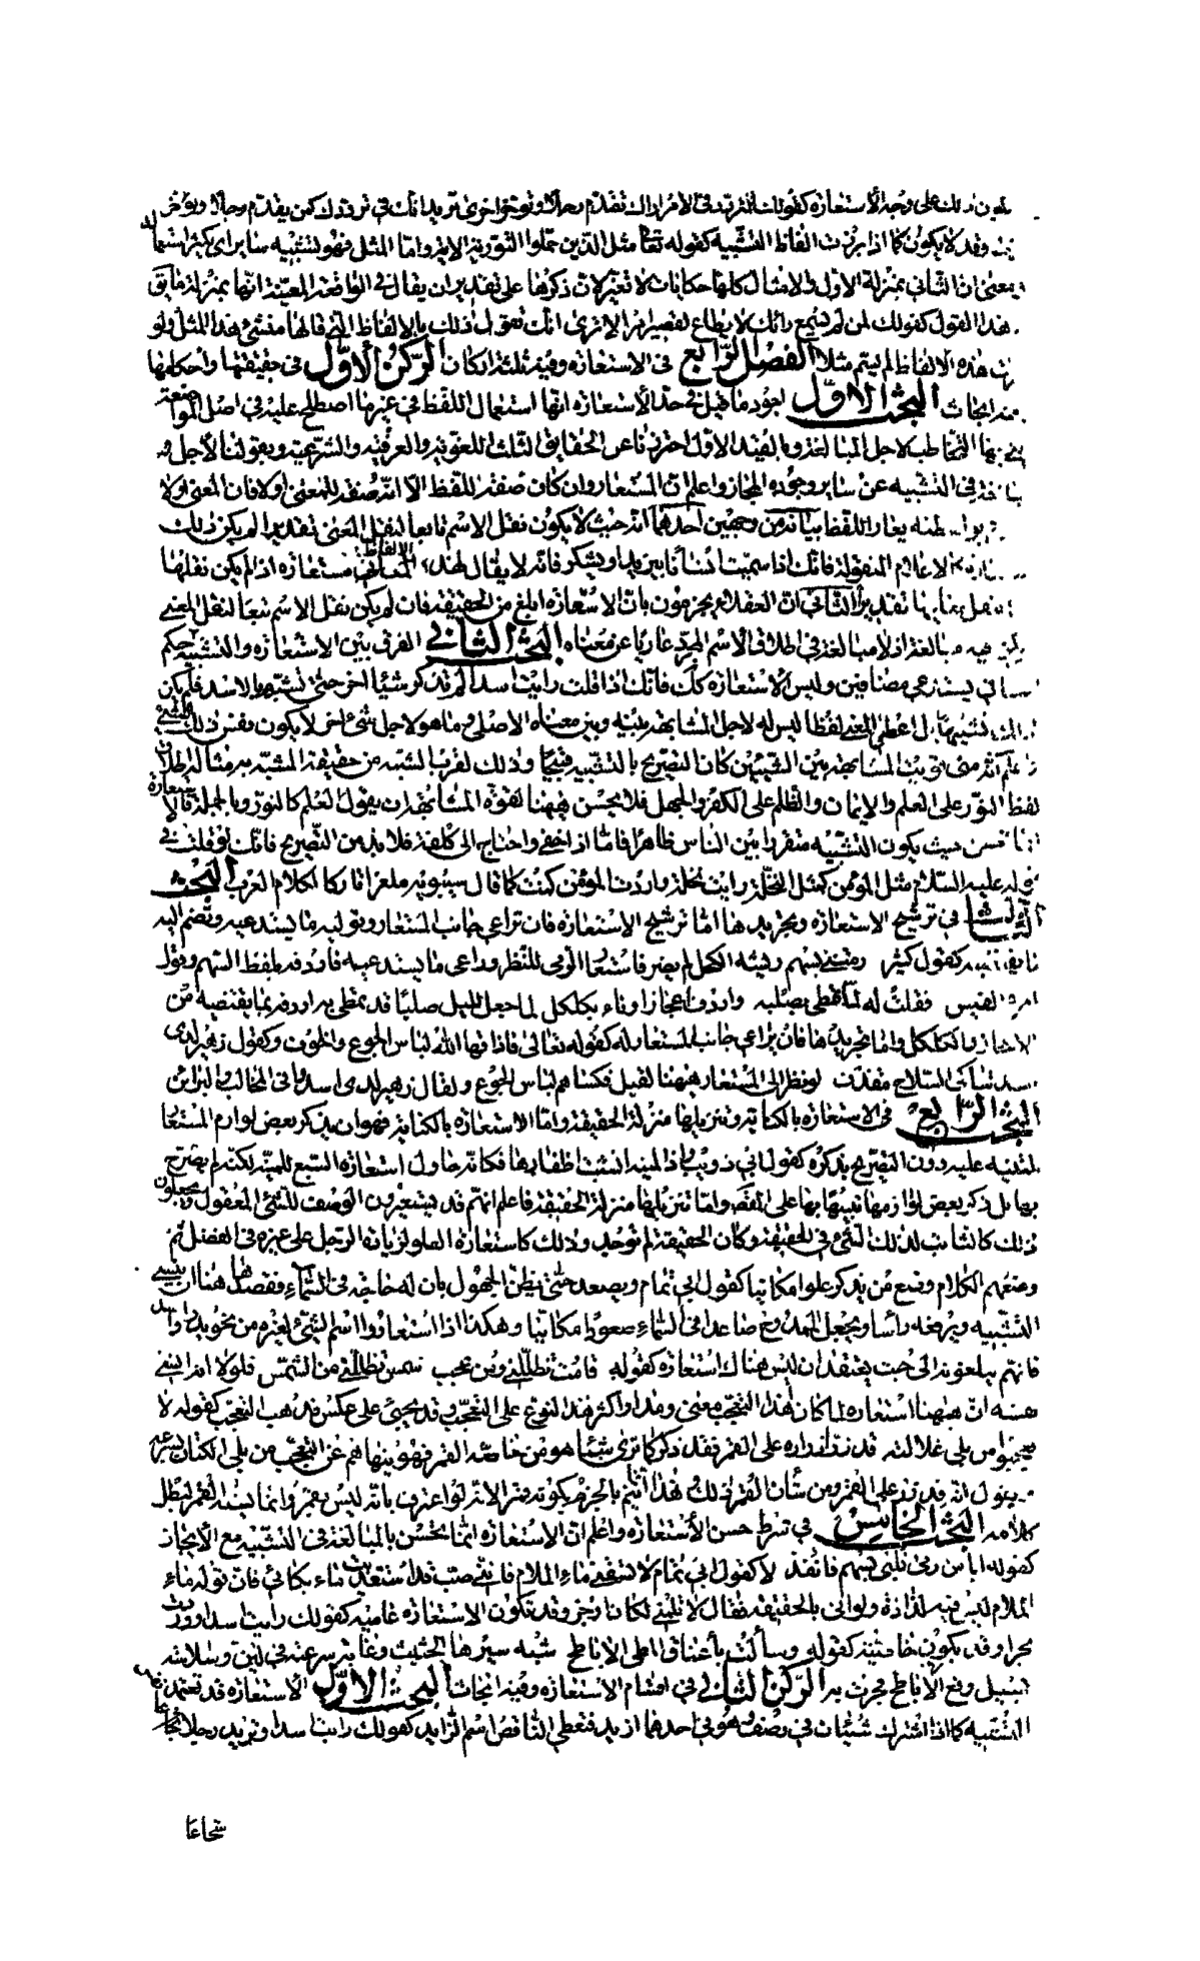 يكون ذلك على وجه الاستعارة كقولك للمتردد في الامر اراك تقدم رجلا وتؤخر اخرى تريد انك في ترددك كمن يقدم رجلا ويؤخر
وقد لا يكون كما اذا برزت الفاظ التشبيه كقوله تعالى مثل الذين حملوا التورية الاية واما المثل فهو تشبيه ساير اي يكثر استعماله
بمعنى ان الثاني بمنزلة الاول والامثال كلها حكايات لا تغير لان ذكرها على تقدير ان يقال في الواقعة المعينة انها بمنزلة ما قيل
هذا القول كقولك لمن لم يسمع رائك لا يطاع لقصير امر الا ترى انك تقول ذلك بالالفاظ التي قالها منشئ هذا المثل ولو
هذه الالفاظ لم يتم مثلا الفصل الرابع في الاستعارة وفيه ثلثة اركان الركن الاول في حقيقتها واحكامها
ابحاث البحث الاول اجود ما قيل في حد الاستعارة انها استعمال اللفظ في غير ما اصطلح عليه في اصل المواضعة
التي بها التخاطب لاجل المبالغة وبالقيد الاول احترزنا عن الحقايق الثلث اللغوية والعرفية والشرعية وبقولنا لاجل
في التشبيه عن ساير وجوه المجاز واعلم ان المستعار وان كان صفة للفظ الا انه صفة للمعنى اولا فان المعنى اولا
يعار اللفظ بيانه من وجهين احدهما انه حيث لا يكون نقل الاسم تابعا لنقل المعنى تقديرا لم يكن ذلك
الاعلام المنقولة فانك اذا سميت انسانا بيزيد او يشكر فانه لا يقال لهذه الالفاظ مستعارة اذ لم يكن نقلها
تقديرا الثاني ان العقلاء يجزمون بان الاستعارة ابلغ من الحقيقة فان لم يكن نقل الاسم تبعا لنقل المعنى
لم يكن فيه مبالغة اذ لا مبالغة في اطلاق الاسم المجرد عاريا عن معناه البحث الثاني الفرق بين الاستعارة والتشبيه حكم
يستدعي مضافين وليس الاستعارة كك فانك اذا قلت رايت اسدا لم تذكر شيئا اخر حتى تشبهه بالاسد فلم يكن
تشبيها بل اعطى المعنى لفظا ليس له لاجل المشابهة بينه وبين معناه الاصلي وما هو لاجل شئ اخر لا يكون نفس ذلك الشئ
واعلم انه متى قويت المشابهة بين الشيئين كان التصريح بالتشبيه قبيحا وذلك لقرب الشبه من حقيقة المشبه به مثاله اطلاق
لفظ النور على العلم والايمان والظلم على الكفر والجهل فلا يحسن ههنا لقوة المشابهة ان يقول العلم كالنور وبالجملة فالاستعارة
انما تحسن حيث يكون التشبيه متقررا بين الناس ظاهرا فاما اذا خفي واحتاج الى كلفة فلا بد من التصريح فانك لو قلت في
قوله عليه السلام مثل المؤمن كمثل النخلة رايت نخلة واردت المؤمن كنت كما قال سيبويه ملغزا تاركا لكلام العرب البحث
الثالث في ترشيح الاستعارة وتجريدها اما ترشيح الاستعارة فان تراعي جانب المستعار وتوليه ما يستدعيه وتضم اليه
ما يقتضيه كقول كثير رمتني بسهم ريشه الكحل لم يضر فاستعار الرمي للنظر وراعى ما يستدعيه فاردفه بلفظ السهم وقول
امرء القيس فقلت له لما تمطى بصلبه واردف اعجازا وناء بكلكل لما جعل لليل صلبا قد تمطى به اردفه بما يقتضيه من
الاعجاز والكلكل واما تجريدها فان يراعى جانب المستعار له كقوله تعالى فاذاقها الله لباس الجوع والخوف وكقول زهير لدى
اسد شاكي السلاح مقذف لو نظر الى المستعار ههنا لقيل فكساهم لباس الجوع ولقال زهير لدى اسد وافي المخالب والبراثن
البحث الرابع في الاستعارة بالكناية وتنزيلها منزلة الحقيقة واما الاستعارة بالكناية فهو ان يذكر بعض لوازم المستعار
للتنبيه عليه دون التصريح بذكره كقول ابي ذويب واذا المنية انشبت اظفارها فكانه حاول استعارة السبع للمنية لكنه لم يصرح
بها بل ذكر بعض لوازمها تنبيها بها على المقصد واما تنزيلها منزلة الحقيقة فاعلم انهم قد يستعيرون الوصف للشئ المعقول ويجعلون
ذلك كالثابت لذلك الشئ في الحقيقة وكان الحقيقة لم توجد وذلك كاستعارة العلو لزيادة الرجل على غيره في الفضل ثم
وضعهم الكلام وضع من يذكر علوا مكانيا كقول ابي تمام ويصعد حتى يظن الجهول بان له حاجة في السماء فقصده هنا ان ينسى
التشبيه ويرفعه رأسا ويجعل الممدوح صاعدا في السماء صعودا مكانيا وهكذا اذا استعاروا اسم الشئ لغيره من نحو بدر واسد
فانهم يبلغونه الى حيث يعتقد ان ليس هناك استعارة كقوله قامت تظللني ومن عجب شمس تظللني من الشمس فلولا انه انسى
نفسه ان ههنا استعارة لما كان لهذا التعجب معنى ومدار اكثر هذا النوع على التعجب وقد يجيئ على عكس مذهب التعجب كقوله لا
تعجبوا من بلى غلالته قد زر ازراره على القمر فقد ذكر كما ترى شيئا هو من خاصة القمر فهو ينهاهم عن التعجب من بلى الكتان بسرعة
يقول انه قد زر على القمر ومن شان القمر ذلك وهذا انما يتم بالجزم بكونه قمرا لانه لو اعترف بانه ليس بقمر وانما يشبه القمر لبطل
كلامه البحث الخامس في شرط حسن الاستعارة واعلم ان الاستعارة انما تحسن بالمبالغة في التشبيه مع الايجاز
كقوله ايا من رمى قلبي بسهم فانفذ لا كقول ابي تمام لا تسقني ماء الملام فانني صب قد استعذبت ماء بكائي فان قوله ماء
الملام ليس فيه لذاذة ولو اتى بالحقيقة فقال لا تلمني لكان اوجز وقد تكون الاستعارة عامية كقولك رايت اسدا ووردت
بحرا وقد يكون خاصية كقوله وسالت باعناق المطي الاباطح شبه سيرها الحثيث وغاية سرعته في لين وسلاسة
بسيل وقع الاباطح فجرت به الركن الثاني في اقسام الاستعارة وفيه ابحاث البحث الاول الاستعارة قد تعتمد
التشبيه كما اذا اشترك شيئان في وصف هو في احدهما ازيد فتعطي الناقص اسم الزايد كقولك رايت اسدا وتريد رجلا شجاعا
شجاعا